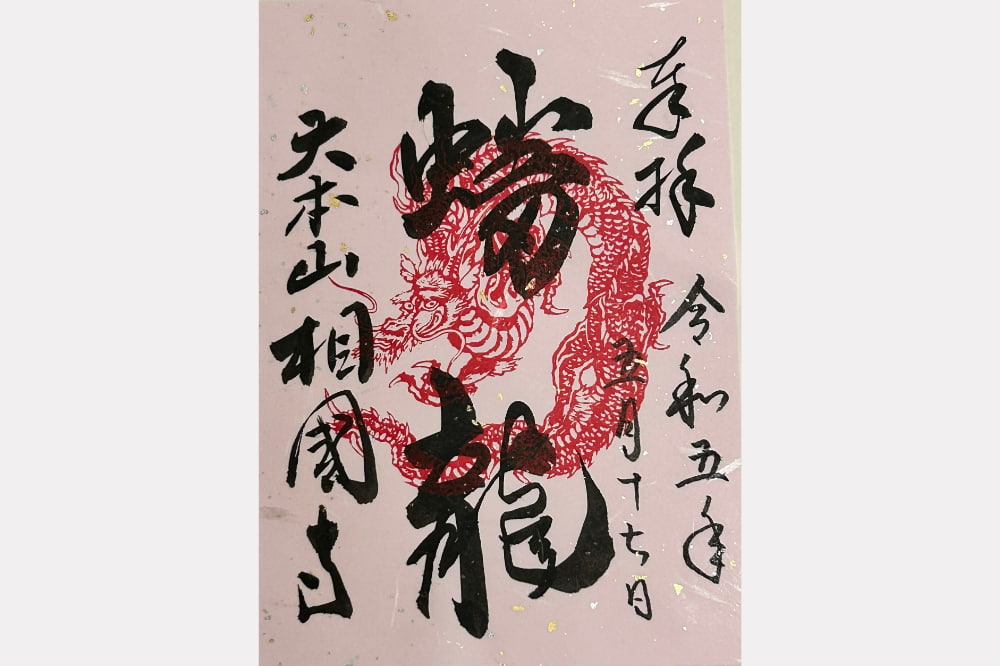 奉拝
令和五年
五月十七日
蟠龍
大本山相國寺